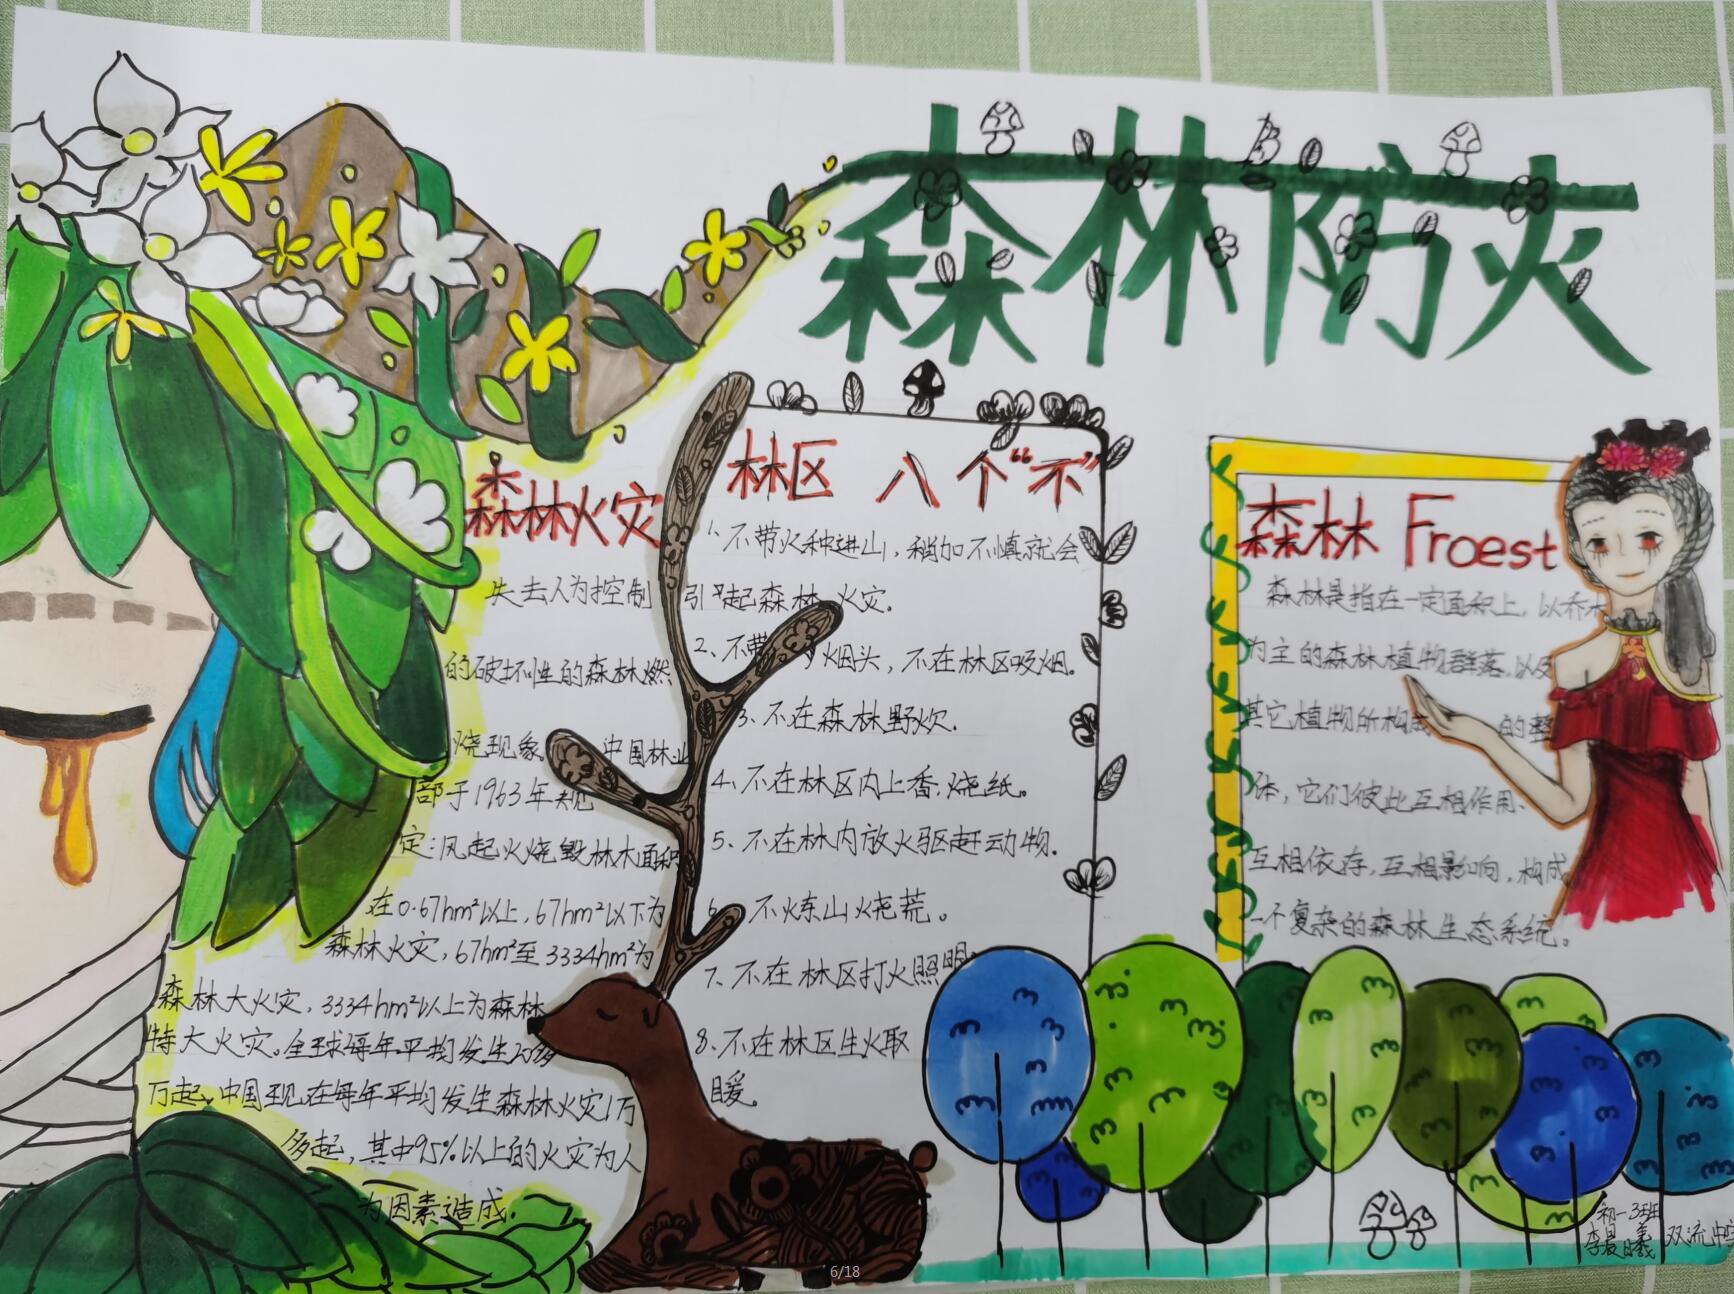 森林防火
森林火灾
失去人为控制
的破坏性的森林燃
烧现象。中国林业
部于1963年规
定:风起火烧毁林木面积
在0.67hm²以上,67hm²以下为
森林火灾,67hm²至3334hm²为
森林大火灾,3334hm²以上为森林
特大火灾。全球每年平均发生20多
万起,中国现在每年平均发生森林火灾1万
多起,其中95%以上的火灾为人
为因素造成.
林区八个“不”
1.不带火种进山,稍加不慎就会
引起森林火灾.
2、不带 烟头,不在林区吸烟.
3、不在森林野炊.
4、不在林区内上香,烧纸。
5、不在林内放火驱赶动物.
6、不炼山烧荒。
7、不在林区打火照明
8、不在林区生火取
暖。
森林 Froest
森林是指在一定面积上,以乔木
为主的森林植物群落,以及
其它植物所构成的整
体,它们彼此互相作用、
互相依存,互相影响,构成
一个复杂的森林生态系统。
初一3班
李晨曦 双流中学
6/18